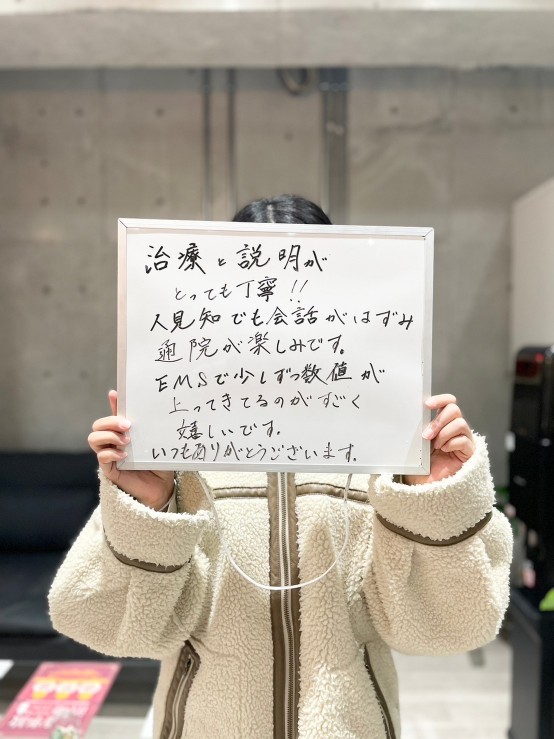 治療と説明が
とっても丁寧!!
人見知でも会話がはずみ
通院が楽しみです。
EMSで少しずつ数値が
上ってきてるのがすごく
嬉しいです。
いつもありがとうございます。